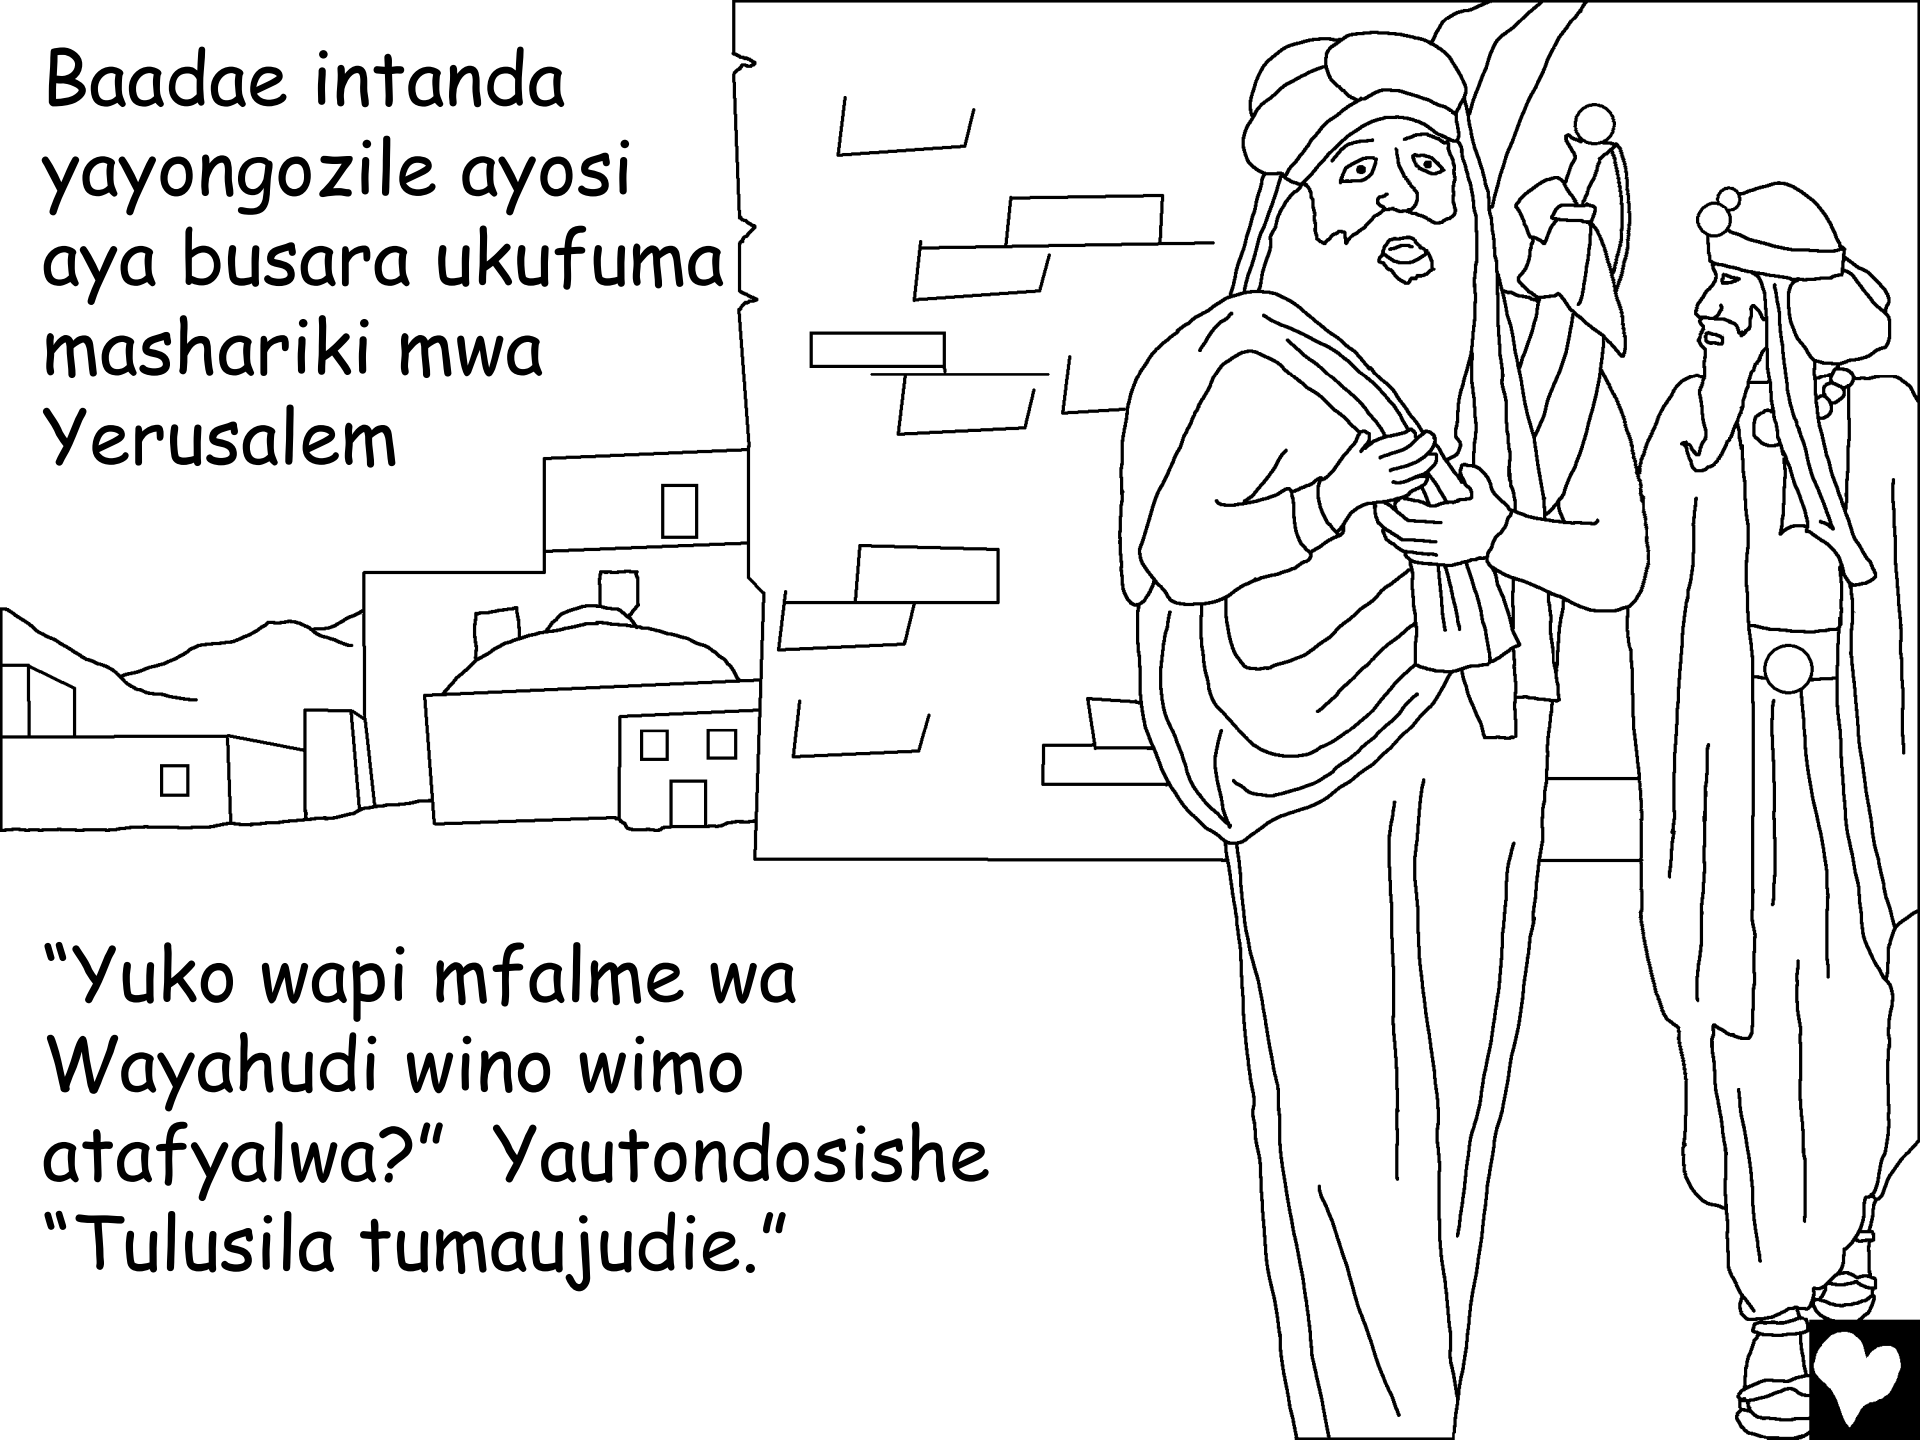 Baadae intanda
yayongozile ayosi
aya busara ukufuma
mashariki mwa
Yerusalem
“Yuko wapi mfalme wa
Wayahudi wino wimo
atafyalwa?” Yautondosishe
“Tulusila tumaujudie.”